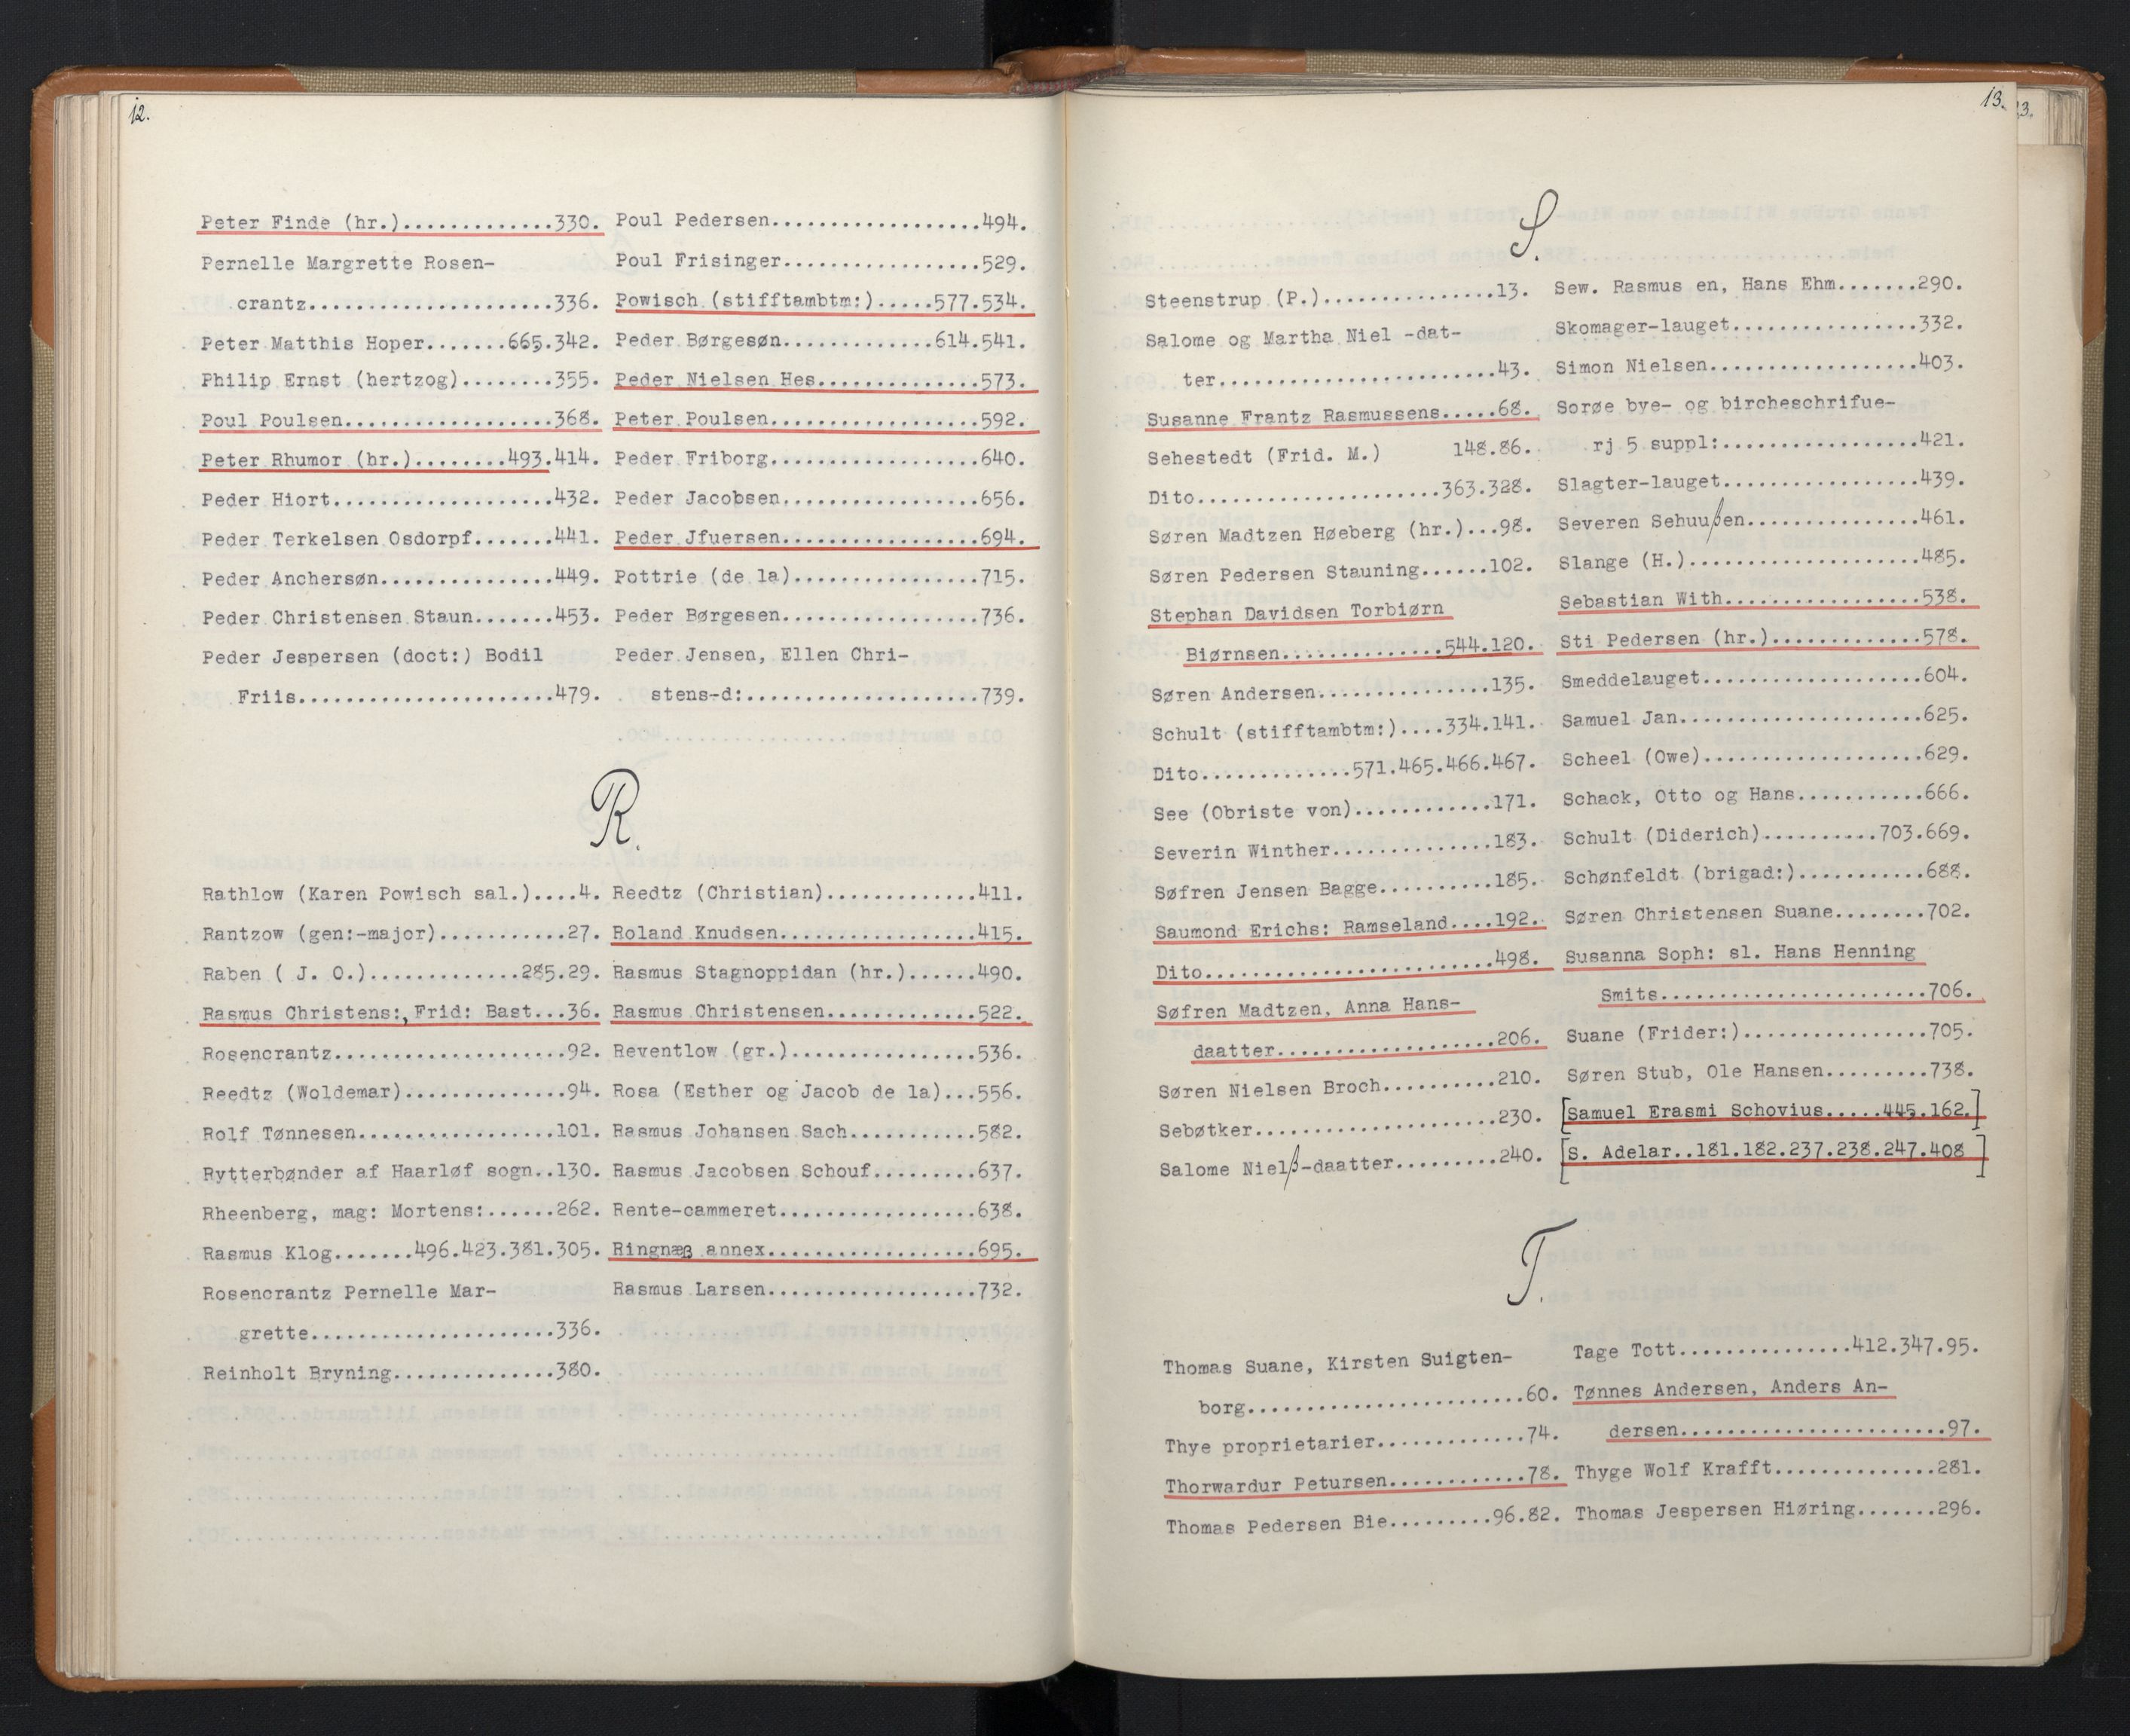 12.
Peter Finde (hr.).............330.
Pernelle Margrette Rosen-
crantz.....................336.
Peter Matthis Hoper.......665.342.
Philip Ernst (hertzog)........355.
Poul Poulsen..................368.
Peter Rhumor (hr.)........493.414.
Peder Hiort...................432.
Peder Terkelsen Osdorpf.......441.
Peder Anchersøn...............449.
Peder Christensen Staun.......453.
Peder Jespersen (doct:) Bodil
Friis......................479.
Poul Pedersen..................494.
Poul Frisinger.................529.
Powisch (stifftambtm:).....577.534.
Peder Børgesøn.............614.541.
Peder Nielsen Hes..............573.
Peter Poulsen..................592.
Peder Friborg..................640.
Peder Jacobsen.................656.
Peder Jfuersen.................694.
Pottrie (de la)................715.
Peder Børgesen.................736.
Peder Jensen, Ellen Chri-
stens-d:....................739.
R.
Rathlow (Karen Powisch sal.)....4.
Rantzow (gen:-major)...........27.
Raben ( J. O.).............285.29.
Rasmus Christens:, Frid: Bast...36.
Rosencrantz....................92.
Reedtz (Woldemar)..............94.
Rolf Tønnesen.................101.
Rytterbønder af Haarløf sogn..130.
Rheenberg, mag: Mortens:......262.
Rasmus Klog.......496.423.381.305.
Rosencrantz Pernelle Mar-
grette.....................336.
Reinholt Bryning..............380.
Reedtz (Christian).............411.
Roland Knudsen.................415.
Rasmus Stagnoppidan (hr.)......490.
Rasmus Christensen.............522.
Reventlow (gr.)................536.
Rosa (Esther og Jacob de la)...556.
Rasmus Johansen Sach...........582.
Rasmus Jacobsen Schouf.........637.
Rente-cammeret.................638.
Ringnæß annex..................695.
Rasmus Larsen..................732.
13.
23.
S.
Steenstrup (P.)...............13.
Salome og Martha Niel -dat-
ter........................43.
Susanne Frantz Rasmussens.....68.
Sehestedt (Frid. M.) 148.86.
Dito.....................363.328.
Søren Madtzen Høeberg (hr.)...98.
Søren Pedersen Stauning......102.
Stephan Davidsen Torbiørn
Biørnsen..............544.120.
Søren Andersen...............135.
Schult (stifftambtm:)....334.141.
Dito.............571.465.466.467.
See (Obriste von)............171.
Severin Winther..............183.
Søfren Jensen Bagge..........185.
Saumond Erichs: Ramseland....192.
Dito.........................498.
Søfren Madtzen, Anna Hans-
daatter...................206.
Søren Nielsen Broch..........210.
Sebøtker.....................230.
Salome Nielß-daatter.........240.
Sew. Rasmus en, Hans Ehm.......290.
Skomager-lauget................332.
Simon Nielsen..................403.
Sorøe bye- og bircheschrifue-
rj 5 suppl:.................421.
Slagter-lauget.................439.
Severen Sehuußen...............461.
Slange (H.)....................485.
Sebastian With.................538.
Sti Pedersen (hr.).............578.
Smeddelauget...................604.
Samuel Jan.....................625.
Scheel (Owe)...................629.
Schack, Otto og Hans...........666.
Schult (Diderich)..........703.669.
Schønfeldt (brigad:)...........688.
Søren Christensen Suane........702.
Susanna Soph: sl. Hans Henning
Smits.......................706.
Suane (Frider:)................705.
Søren Stub, Ole Hansen.........738.
[Samuel Erasmi Schovius.....445.162.]
[S. Adelar..181.182.237.238.247.408 ]
T.
Thomas Suane, Kirsten Suigten-
borg........................60.
Thye proprietarier.............74.
Thorwardur Petursen............78.
Thomas Pedersen Bie.........96.82.
Tage Tott...............412.347.95.
Tønnes Andersen, Anders An-
dersen.......................97.
Thyge Wolf Krafft..............281.
Thomas Jespersen Hiøring.......296.